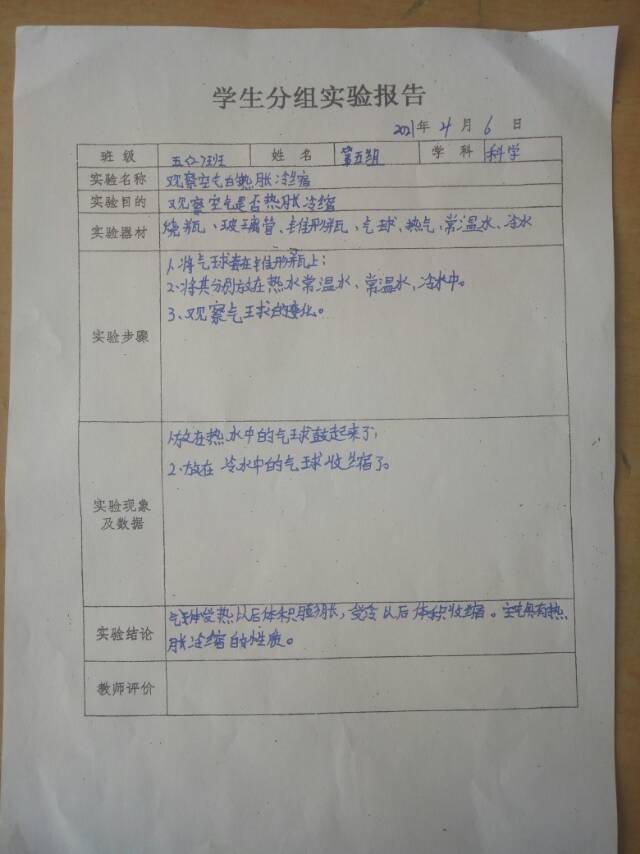 学生分组实验报告
2021年 4 月 6 日
班 级 五(2)班 姓 名 第五组 学 科 科学
实验名称 观察空气的热胀冷缩
实验目的 观察空气是否热胀冷缩
实验器材 烧瓶、玻璃管、锥形瓶、气球、热气、常温水、冷水
实验步骤
1.将气球套在锥形瓶上;
2.将其分别放在热水常温水、常温水,冷水中。
3、观察气球的变化。
实验现象
及数据
1.放在热水中的气球鼓起来了;
2.放在冷水中的气球收缩了。
实验结论
气体受热以后体积膨胀,受冷以后体积收缩。空气具有热
胀冷缩的性质。
教师评价